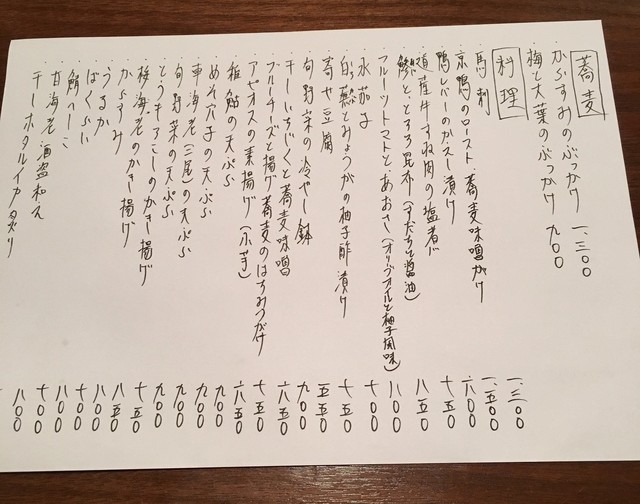 蕎麦
からすみのぶっかけ 一、三〇〇
梅と大葉のぶっかけ 九〇〇
料理
馬刺 一、三〇〇
京鴨のロースト・蕎麦味噌がけ 一、五〇〇
鴨レバーのカラシ漬け 六〇〇
道産牛すね肉の塩煮 七五〇
鱧と、とろろ昆布(すだちと醤油) 八五〇
フルーツトマトとあおさ(オリーブオイルと柚子風味) 八〇〇
水茄子 七〇〇
白瓜とみょうがの柚子酢漬け 七五〇
寄せ豆腐 五五〇
旬野菜の冷やし鉢 九〇〇
干しいちじくと蕎麦味噌 六五〇
ブルーチーズと揚げ蕎麦のはちみつがけ 七五〇
の素揚げ(小芋) 六五〇
稚鮎の天ぷら 九〇〇
めそ穴子の天ぷら 九〇〇
車海老(二尾)の天ぷら 九〇〇
旬野菜の天ぷら 九〇〇
とうもろこしのかき揚げ 七五〇
桜海老のかき揚げ 八五〇
からすみ 八〇〇
うるか 八〇〇
ばくらい 八〇〇
鯖へしこ 七〇〇
甘海老酒盗和え 八〇〇
干しホタルイカ炙り